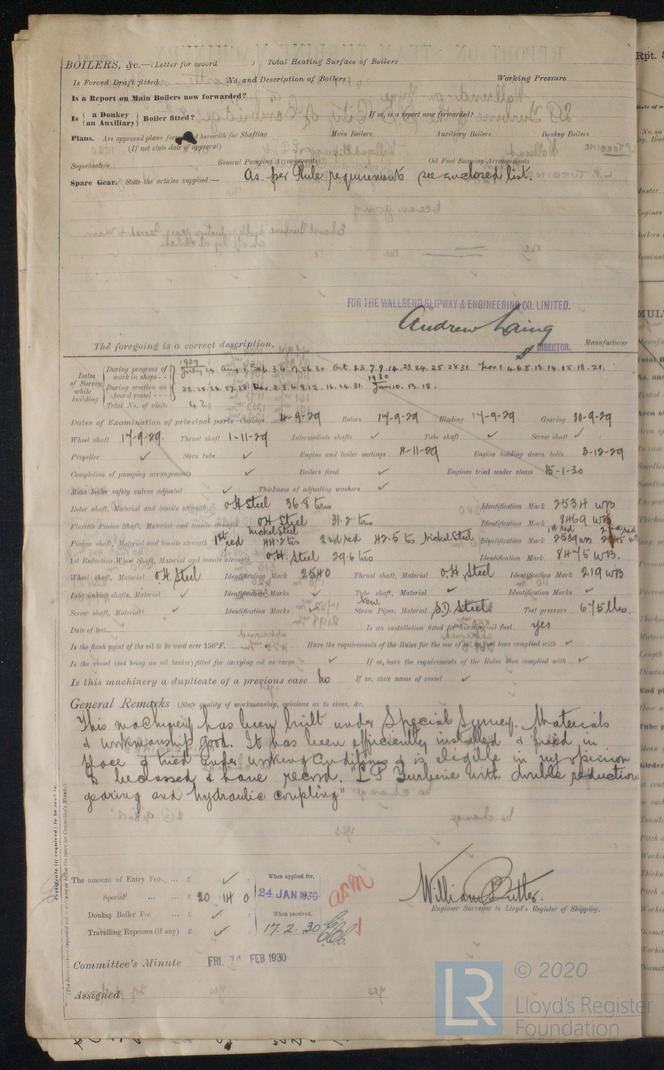 BOILERS, &c.—(Letter for record ) Total Heating Surface of Boilers
Is Forced Draft fitted No. and Description of Boilers Working Pressure
Is a Report on Main Boilers now forwarded?
Is {a Donkey / an Auxiliary} Boiler fitted? If so, is a report now forwarded?
Plans. Are approved plans forwarded herewith for Shafting Main Boilers Auxiliary Boilers Donkey Boilers
(If not state date of approval)
Superheaters General Pumping Arrangements Oil Fuel Burning Arrangements
Spare Gear. State the articles supplied:— As per Rule requirements see enclosed list.
FOR THE WALLSEND SLIPWAY & ENGINEERING CO. LIMITED.
Andrew Laing
DIRECTOR.
The foregoing is a correct description, Manufacturer
Dates of Survey while building
During progress of work in shops - - 1929
During erection on board vessel - - - 1930 Jan 10. 13. 15.
Total No. of visits 42
Dates of Examination of principal parts—Casings 4-9-29 Rotors 17-9-29 Blading 17-9-29 Gearing 30-9-29
Wheel shaft 17-9-29 Thrust shaft 1-11-29 Intermediate shafts ✓ Tube shaft ✓ Screw shaft ✓
Propeller ✓ Stern tube ✓ Engine and boiler seatings 4-11-29 Engine holding down bolts 3-12-29
Completion of pumping arrangements ✓ Boilers fixed ✓ Engines tried under steam 15-1-30
Main boiler safety valves adjusted ✓ Thickness of adjusting washers ✓
Rotor shaft, Material and tensile strength O.H. Steel 36.8 tons Identification Mark 2534 WB
Flexible Pinion Shaft, Material and tensile strength O.H. Steel 31.2 tons Identification Mark 8469 WB
Pinion shaft, Material and tensile strength 1st red Nickel Steel 44.2 tons 2nd red 42.5 to Nickel Steel Identification Mark 1st red 2539 WB 2nd red
1st Reduction Wheel Shaft, Material and tensile strength O.H. Steel 29.6 tons Identification Mark 8475 WB.
Wheel shaft, Material O.H. Steel Identification Mark 2540 Thrust shaft, Material O.H. Steel Identification Mark 219 WB
Intermediate shafts, Material ✓ Identification Marks ✓ Tube shaft, Material ✓ Identification Marks ✓
Screw shaft, Material ✓ Identification Marks ✓ Steam Pipes, Material S.D. Steel Test pressure 675 lbs.
Date of test Is an installation fitted for burning oil fuel yes
Is the flash point of the oil to be used over 150°F. Have the requirements of the Rules for the use of oil as fuel been complied with ✓
Is the vessel (not being an oil tanker) fitted for carrying oil as cargo ✓ If so, have the requirements of the Rules been complied with ✓
Is this machinery a duplicate of a previous case No If so, state name of vessel ✓
General Remarks (State quality of workmanship, opinions as to class, &c.
This machinery has been built under Special Survey. Materials
& workmanship good. It has been efficiently installed & fixed in
place & tried under working conditions & is eligible in my opinion
to be classed & have record. "L.P. Turbine with double reduction
gearing and hydraulic coupling"
The amount of Entry Fee ... £ ✓ When applied for,
Special ... ... £ 20 14 0 24 JAN 1930
Donkey Boiler Fee ... £ ✓ When received,
Travelling Expenses (if any) £ ✓ 17.2.30
William Butler.
Engineer Surveyor to Lloyd's Register of Shipping.
Committee's Minute FRI. FEB 1930
Assigned
© 2020
LR Lloyd's Register
Foundation